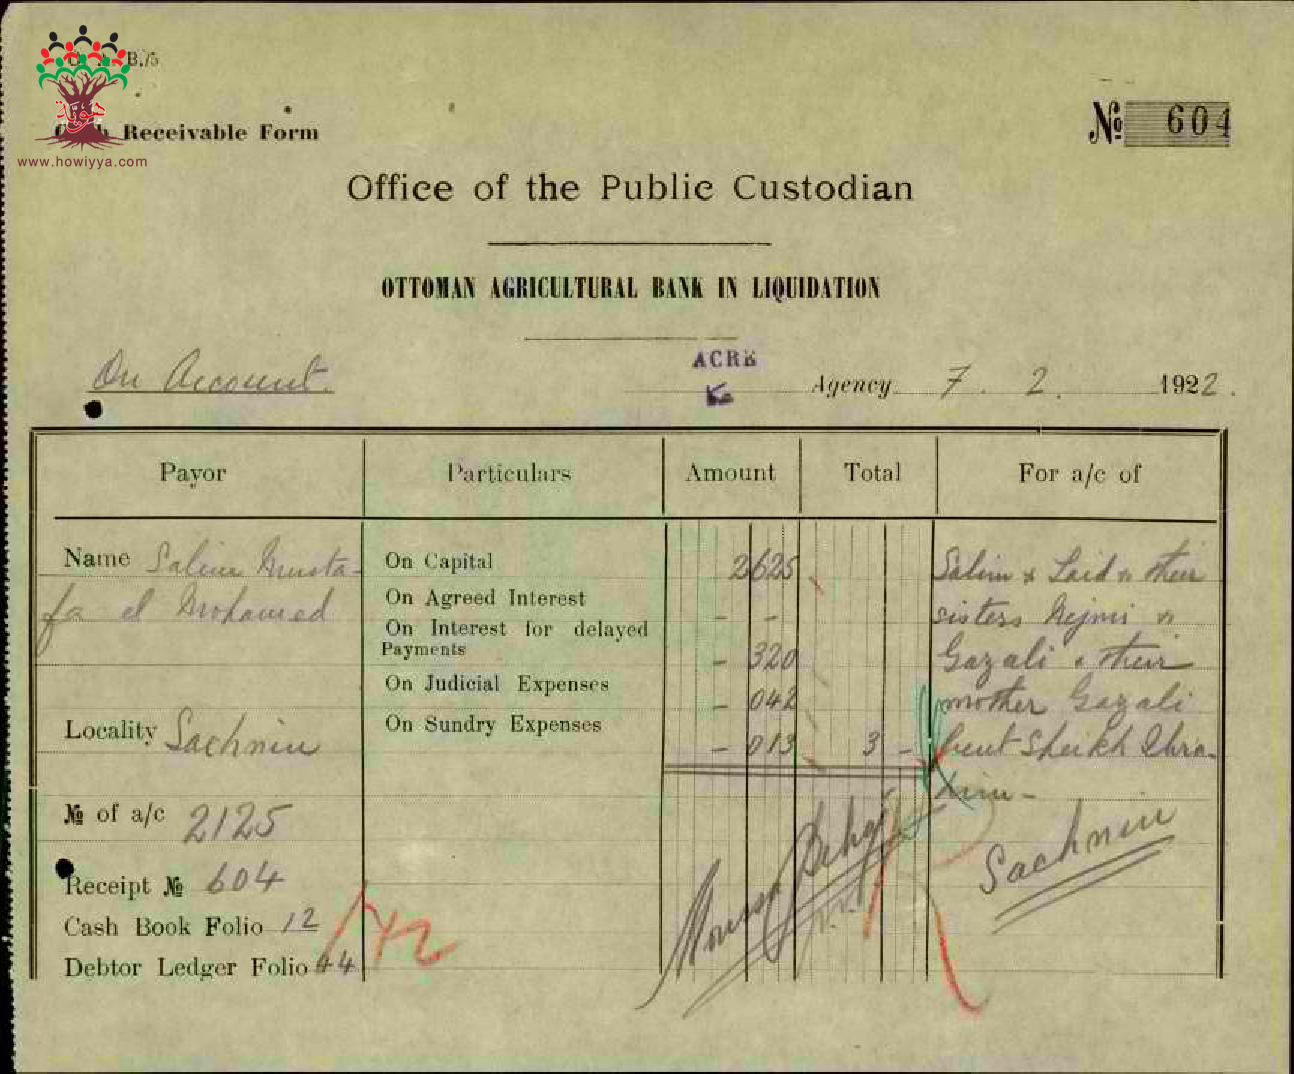 B./5
هوية
www.howiyya.com
Receivable Form
№ 604
Office of the Public Custodian
OTTOMAN AGRICULTURAL BANK IN LIQUIDATION
On Account.
ACRE
Agency 7. 2. 1922.
Payor Particulars Amount Total For a/c of
Name Salim Musta-
fa el Mohamed
Locality Sachnin
№ of a/c 2125
Receipt № 604
Cash Book Folio 12
Debtor Ledger Folio 44
On Capital 2625
On Agreed Interest - -
On Interest for delayed
Payments - 320
On Judicial Expenses - 042
On Sundry Expenses - 013 3 -
Salim & Said & their
sisters Nejmi &
Gazali & their
mother Gazali
bent Sheikh Ibra-
him -
Sachnin
42